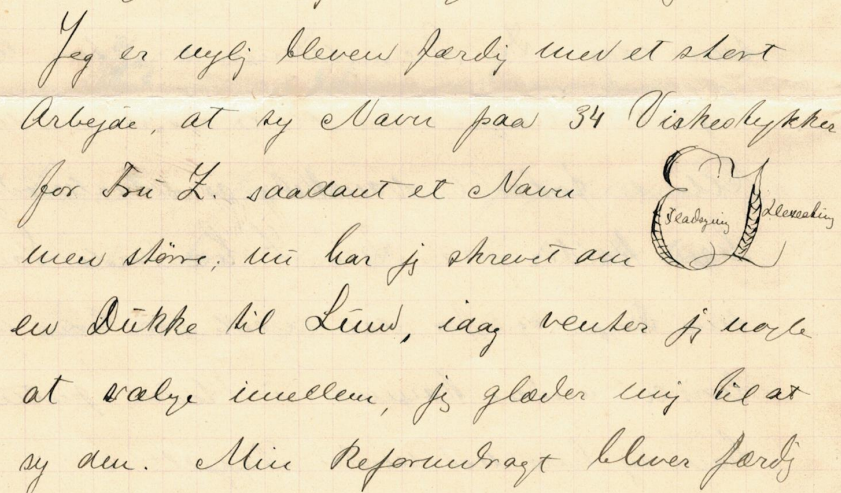 Jeg er nylig bleven færdig med et stort
Arbejde, at sy Navn paa 34 Viskestykker
for Fru Z. saadant et Navn
EZ
Fladsyning
men større; nu har jeg skrevet om
en Dukke til Lund, idag venter jeg nogle
at vælge imellem, jeg glæder mig til at
sy den. Min Reformdragt bliver færdig